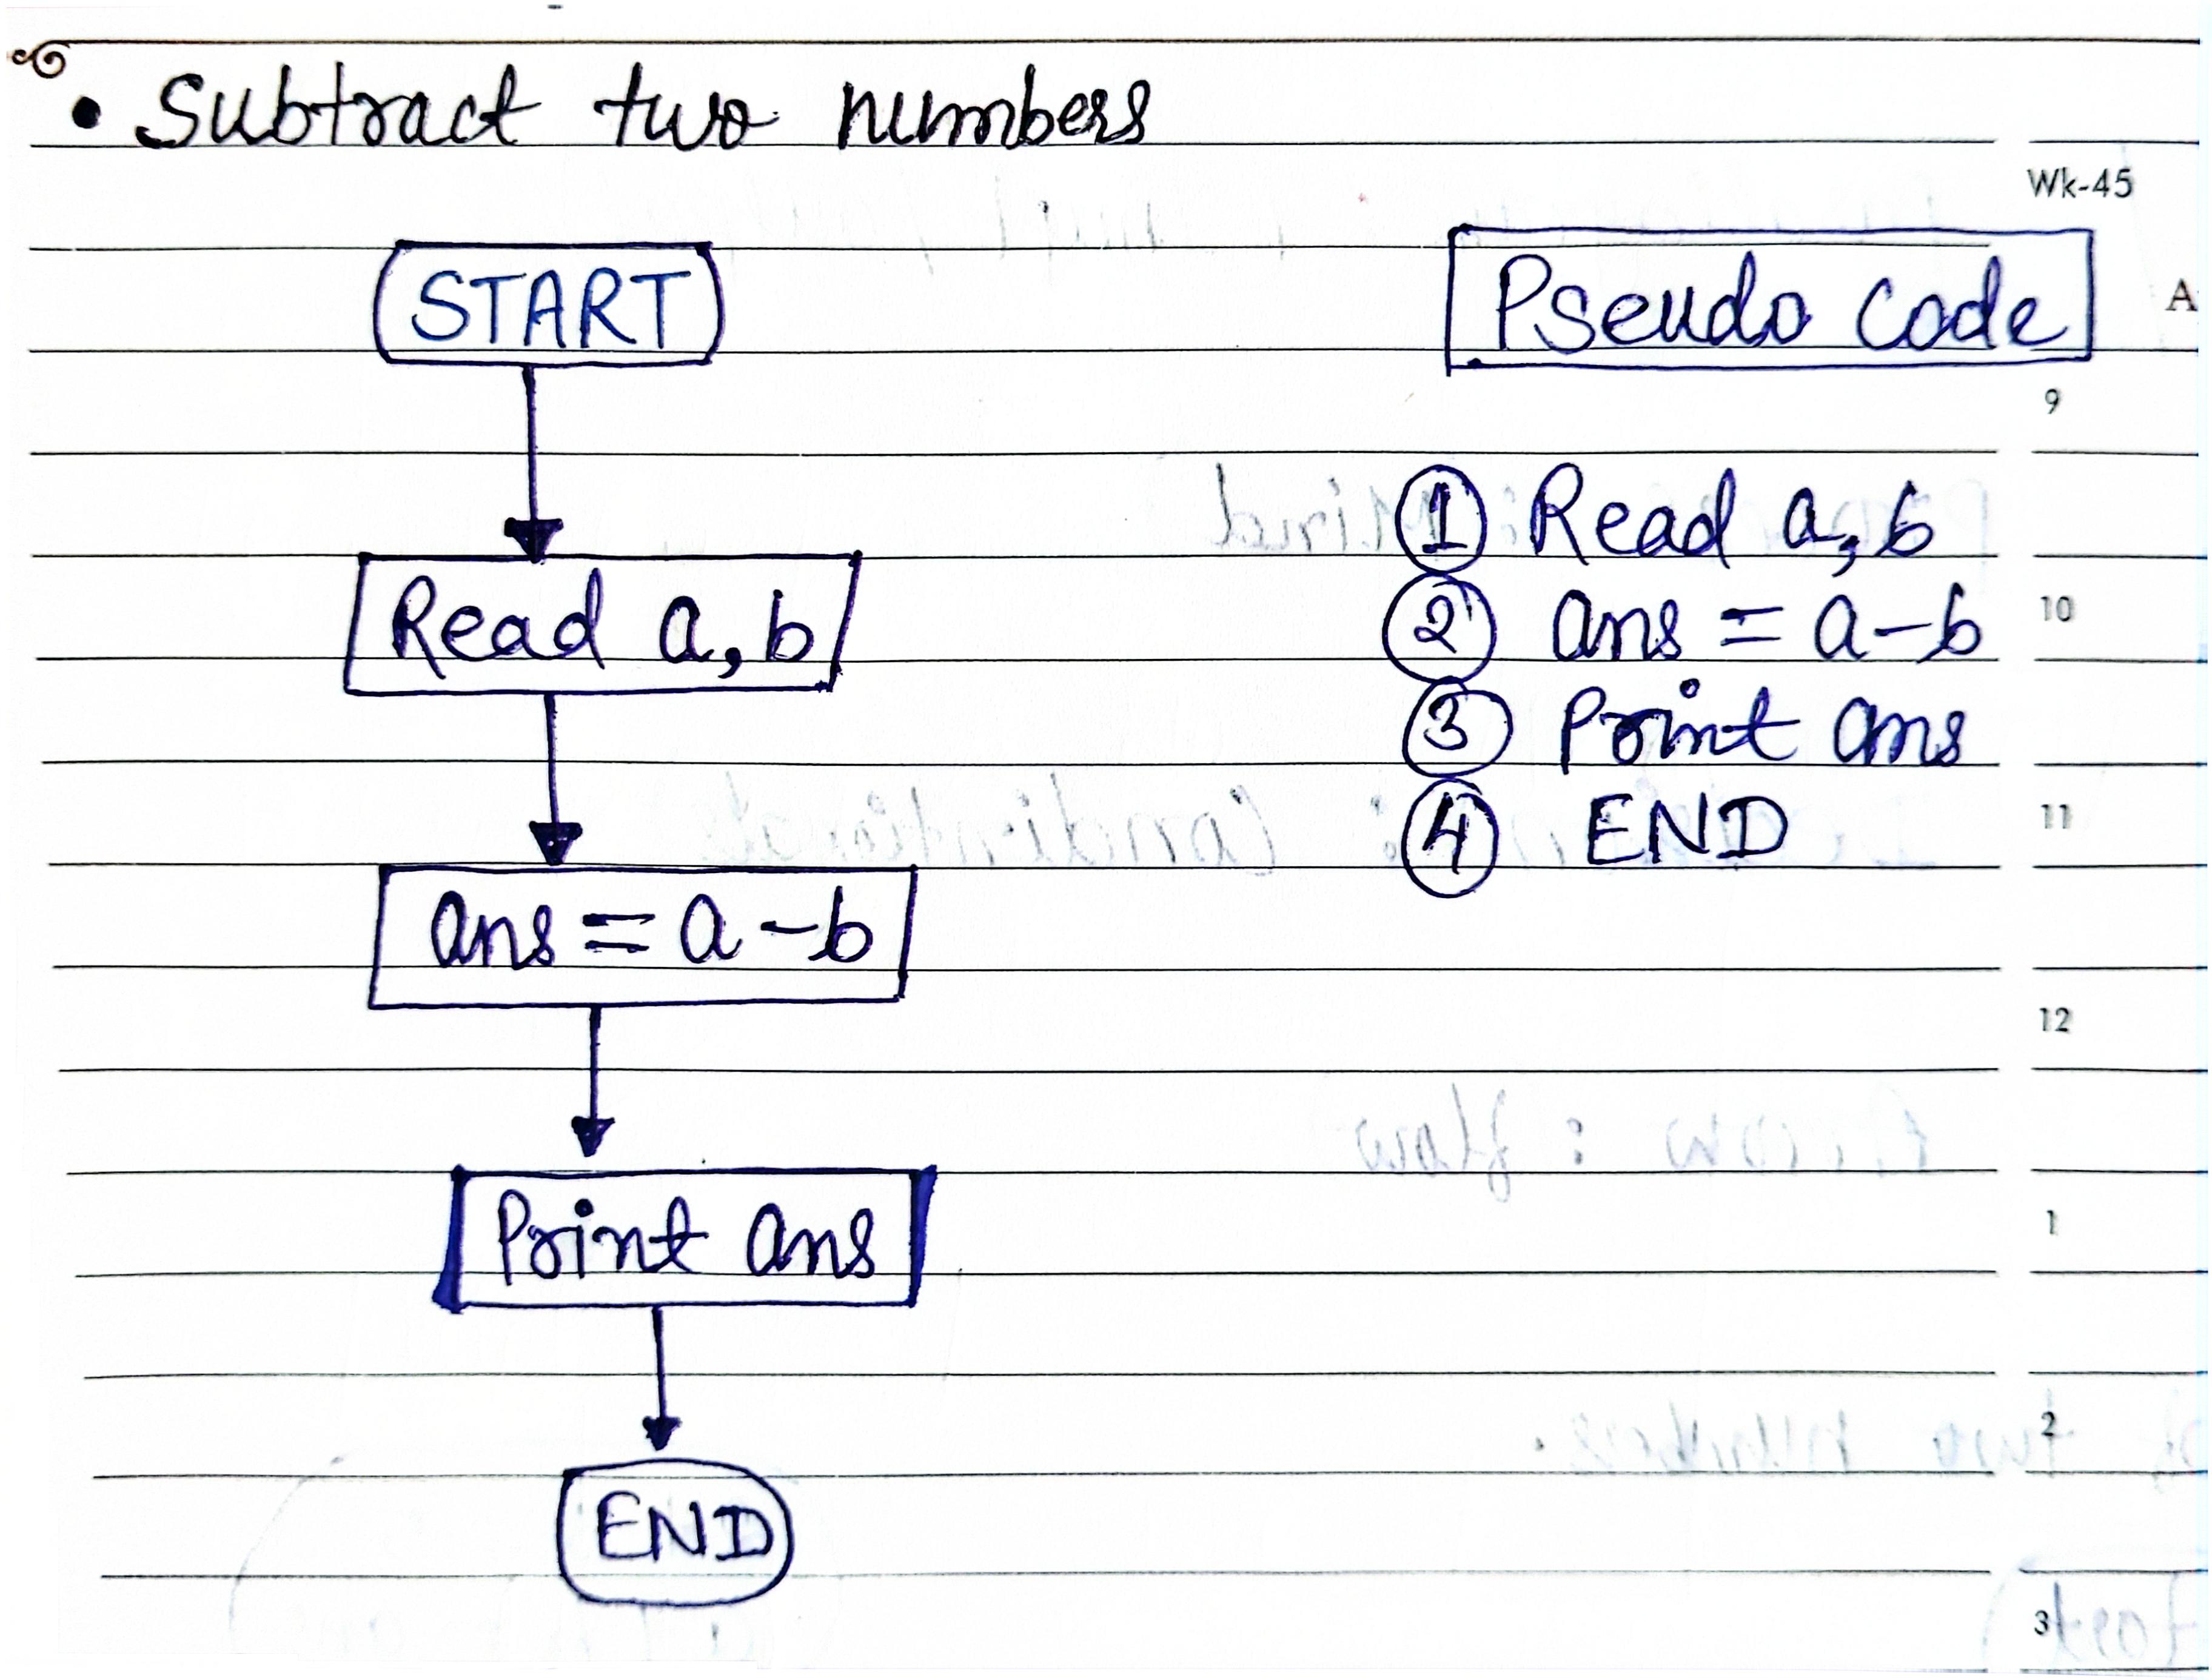 • Subtract two numbers
Wk-45
START
Read a, b
ans = a - b
Print ans
END
Pseudo code
A
① Read a, b
② ans = a - b
③ Print ans
④ END
9
10
11
12
1
2
3